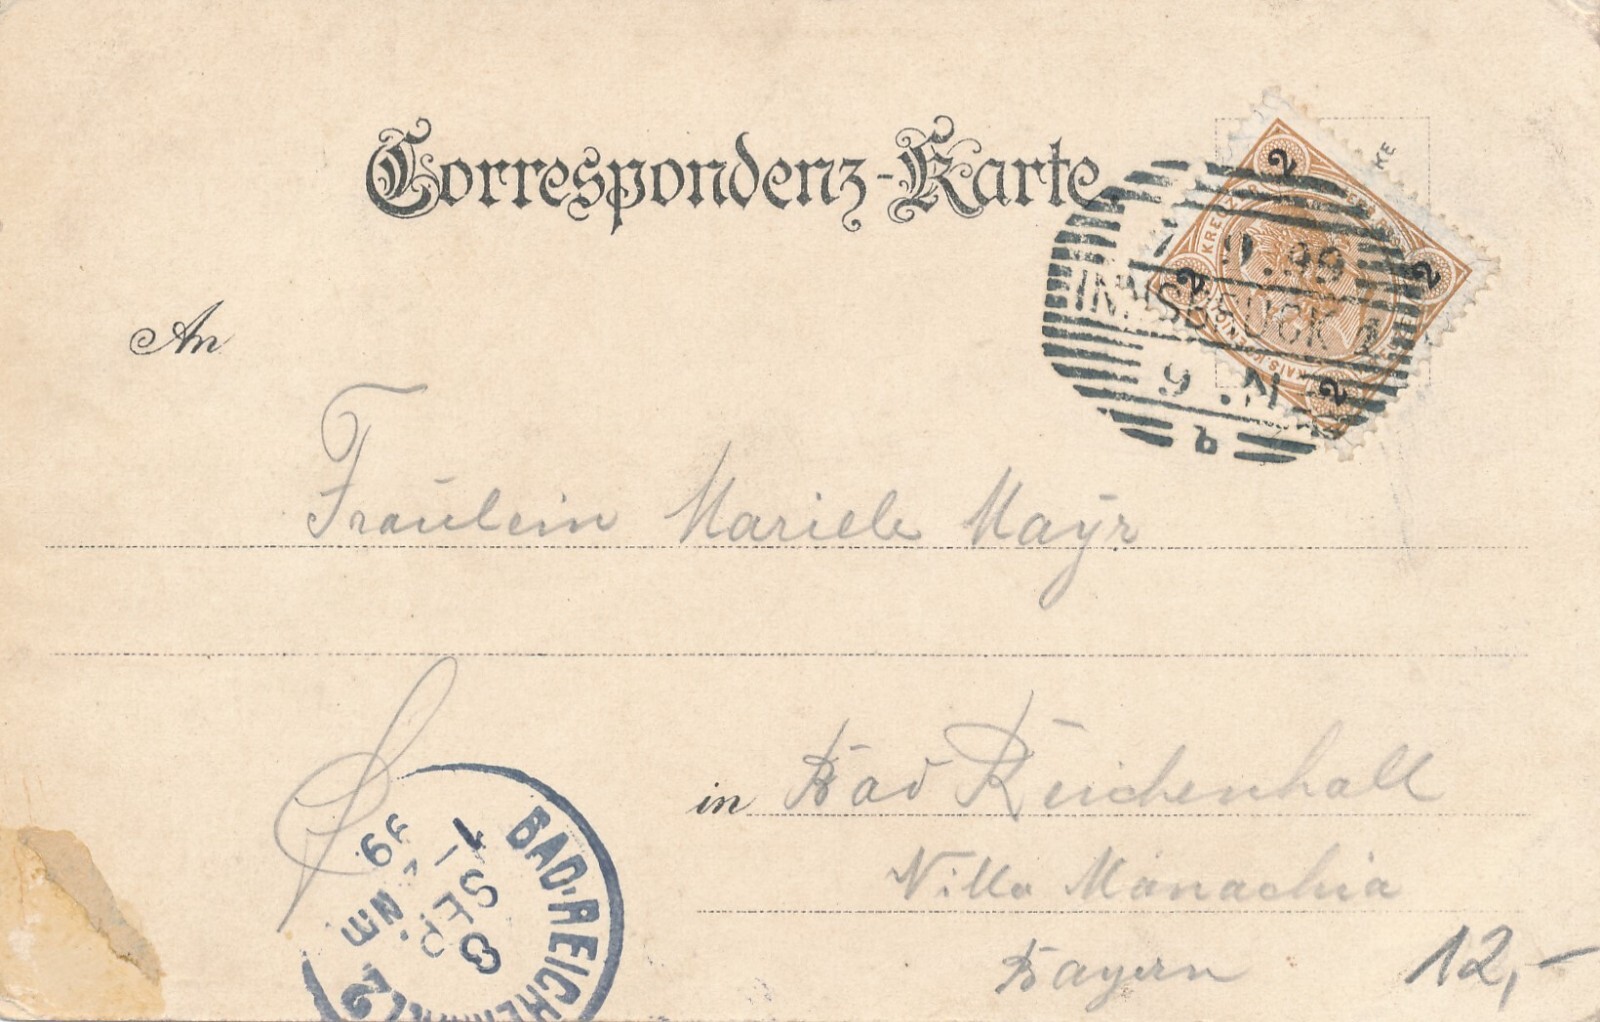 Correspondenz-Karte.
KE
2 2 2 2
KREUZER
7.9.99
INNSBRUCK 1
9.N
b
An
Fräulein Mariele Mayr
in Bad Reichenhall
Villa Manachia
Bayern
12,-
BAD-REICHENHALL 2
1
8 SEP
99
Nm